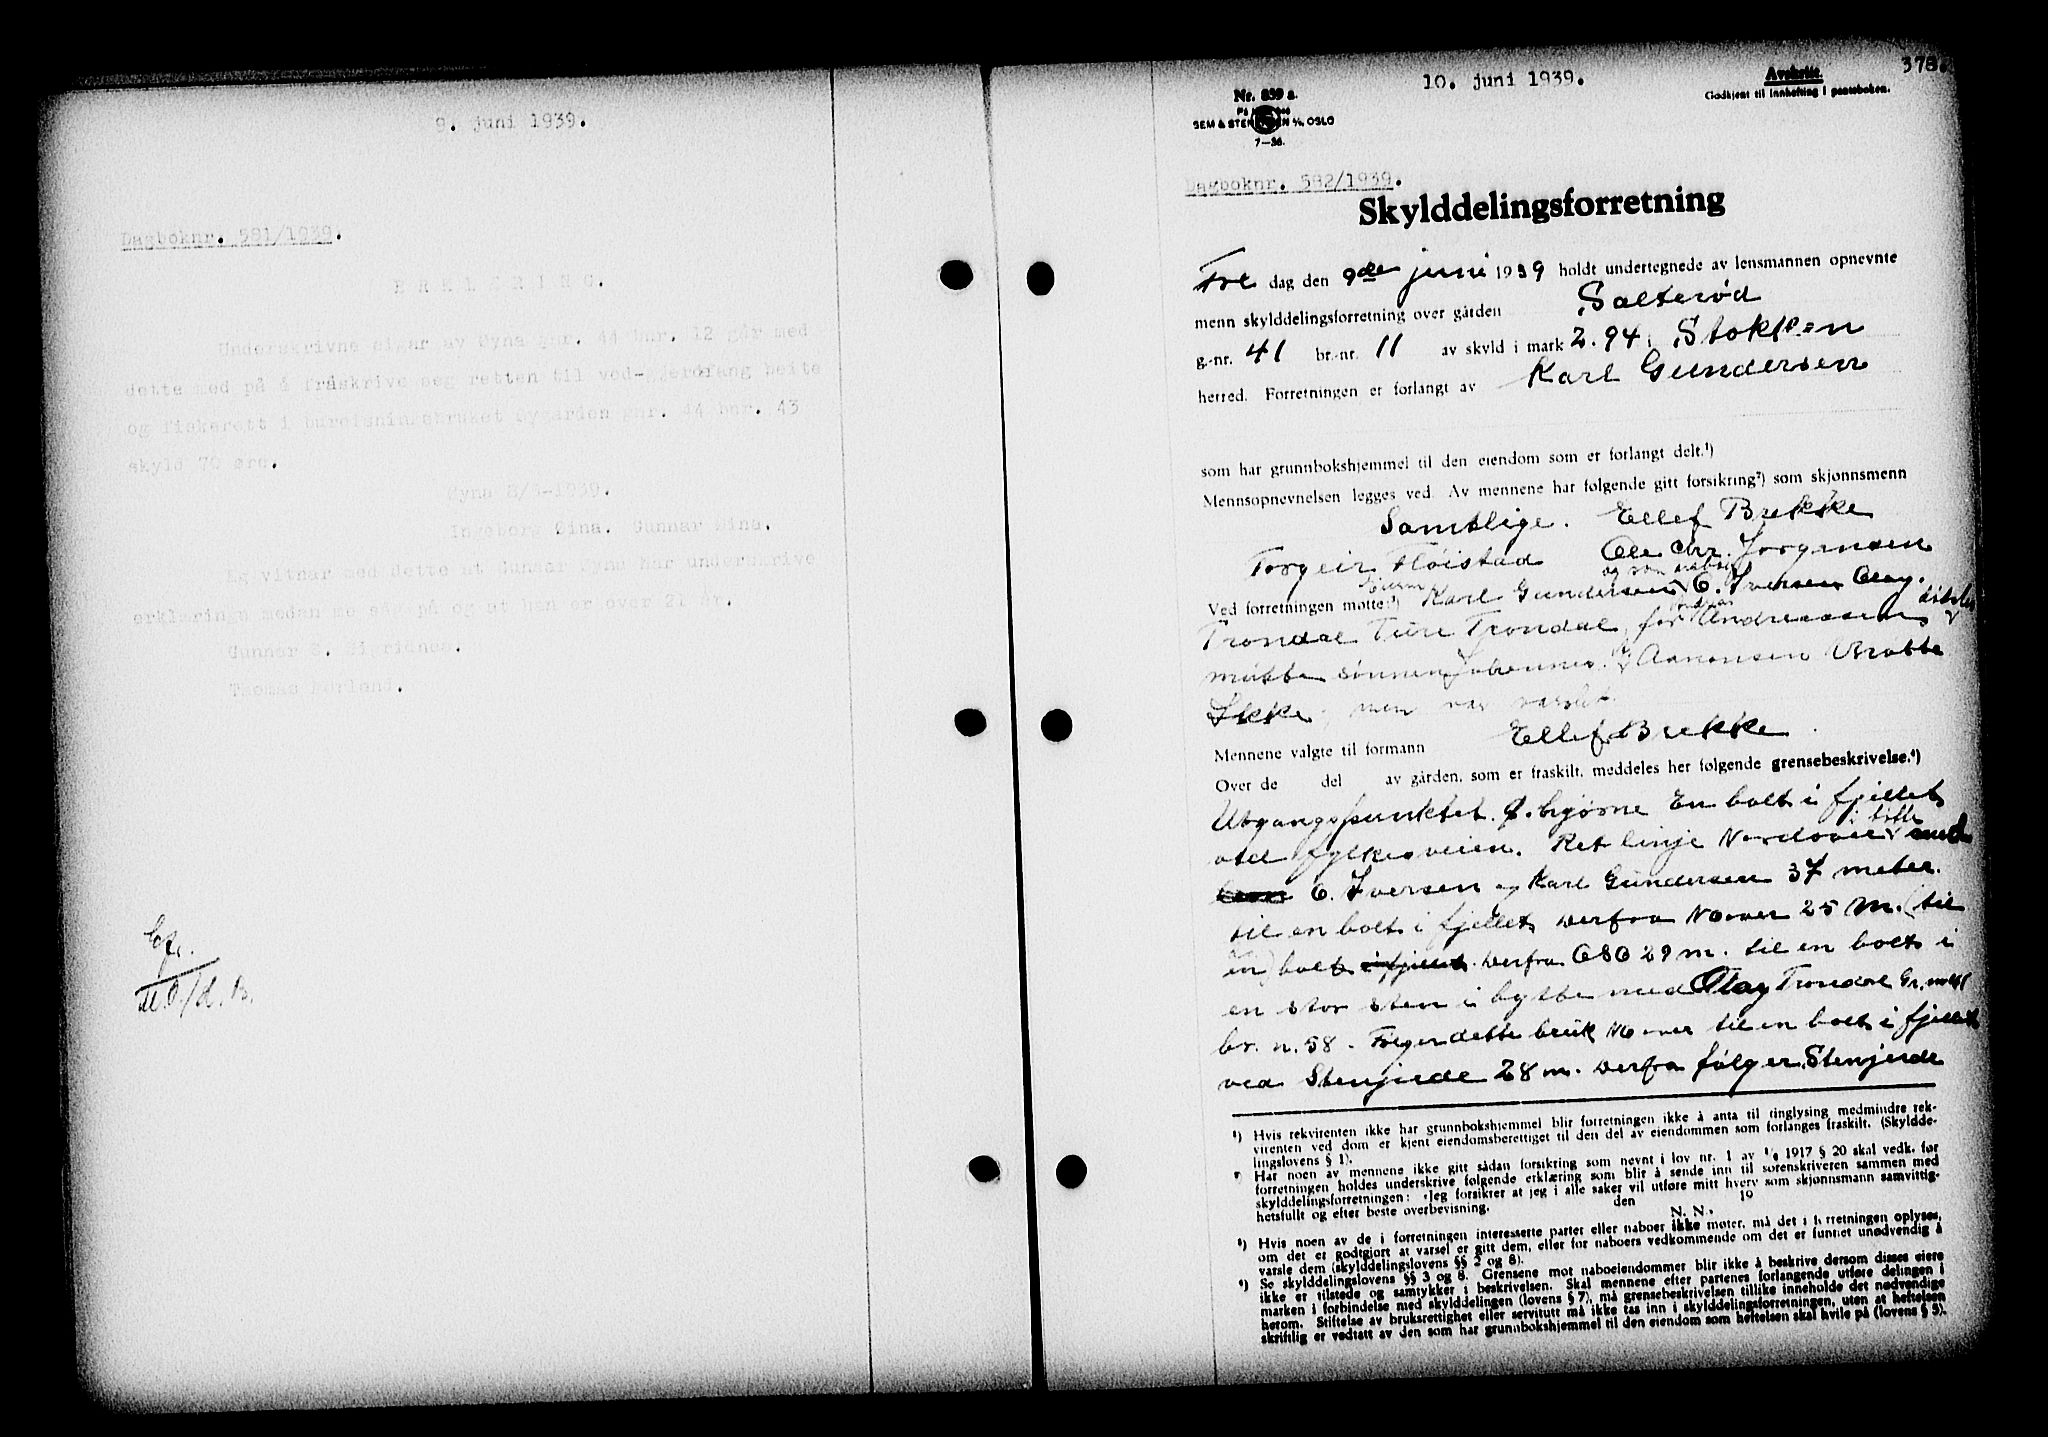 9. juni 1939.
Dagboknr. 581/1939.
ERKLÆRING.
Underskrivne eigar av Øyna gnr. 44 bnr. 12 går med
dette med på å fråskrive seg retten til ved-gjerdfang beite
og fiskerett i bureisningsbruket Nygarden gnr. 44 bnr. 43
skyld 70 øre.
Øyna 8/5-1939.
Ingeborg Øina. Gunnar Øina.
Eg vitnar med dette at Gunnar Øyna har underskrive
erklæringa medan me såg på og at han er over 21 år.
Gunnar S. Sigridnes.
Thomas Mørland.
378.
10. juni 1939.
Avskrift.
Godkjent til innhefting i panteboken.
Nr. 839 a.
SEM & STENERSEN A/S, OSLO
7—36.
Dagboknr. 582/1939.
Skylddelingsforretning
Fre dag den 9de juni 1939 holdt undertegnede av lensmannen opnevnte
menn skylddelingsforretning over gården Salterød
g.-nr. 41 br.-nr. 11 av skyld i mark 2.94 i Stokken
herred. Forretningen er forlangt av Karl Gundersen
som har grunnbokshjemmel til den eiendom som er forlangt delt.¹)
Mennsopnevnelsen legges ved. Av mennene har følgende gitt forsikring²) som skjønnsmenn
Samtlige. Ellef Brekke
Torgeir Fløistad Ole Chr. Jorgensen
og som nabo
Ved forretningen møtte:³) Eieren Karl Gundersen C. Iversen Olay.
Trondal Ture Trondal, for Andreassen
møtte sønnen Johannes. Aanonsen Vrobbe
Ikke, men var varslet.
Mennene valgte til formann Ellef Brekke
Over de del av gården, som er fraskilt, meddeles her følgende grensebeskrivelse.⁴)
Utgangspunktet. Ø. hjørne En bolt i fjellet
ved fylkesveien. Ret linje Nordover i dele med
C. Iversen og Karl Gundersen 37 meter.
til en bolt i fjellet Derfra NO over 25 m. (til
en) bolt i fjellet. Derfra OSO 29 m. til en bolt i
en stor sten i bytte med Olay Trondal Gr. nr 41
br. n. 58. Følger dette bruk NO over til en bolt i fjellet
ved Stenjerde 28 m. Derfra følger Stenjerde
¹) Hvis rekvirenten ikke har grunnbokshjemmel blir forretningen ikke å anta til tinglysing medmindre rek-
virenten ved dom er kjent eiendomsberettiget til den del av eiendommen som forlanges fraskilt. (Skyldde-
lingslovens § 1).
²) Har noen av mennene ikke gitt sådan forsikring som nevnt i lov nr. 1 av 1/6 1917 § 20 skal vedk. før
forretningen holdes underskrive følgende erklæring som blir å sende inn til sorenskriveren sammen med
skylddelingsforretningen: «Jeg forsikrer at jeg i alle saker vil utføre mitt hverv som skjønnsmann samvittig-
hetsfullt og efter beste overbevisning. den 19
N. N.»
³) Hvis noen av de i forretningen interesserte parter eller naboer ikke møter, må det i forretningen oplyses,
om det er godtgjort at varsel er gitt dem, eller for naboers vedkommende om det er funnet unødvendig å
varsle dem (skylddelingslovens §§ 2 og 8).
⁴) Se skylddelingslovens §§ 3 og 8. Grensene mot naboeiendommer blir ikke å beskrive dersom disses eiere
ikke er tilstede og samtykker i beskrivelsen. Skal mennene efter partenes forlangende utføre delingen i
marken i forbindelse med skylddelingen (lovens § 7), må grensebeskrivelsen tillike inneholde det nødvendige
herom. Stiftelse av bruksrettighet eller servitutt må ikke tas inn i skylddelingsforretningen, uten at heftelsen
skriftlig er vedtatt av den som har grunnbokshjemmel til den eiendom som heftelsen skal hvile på (lovens § 5).